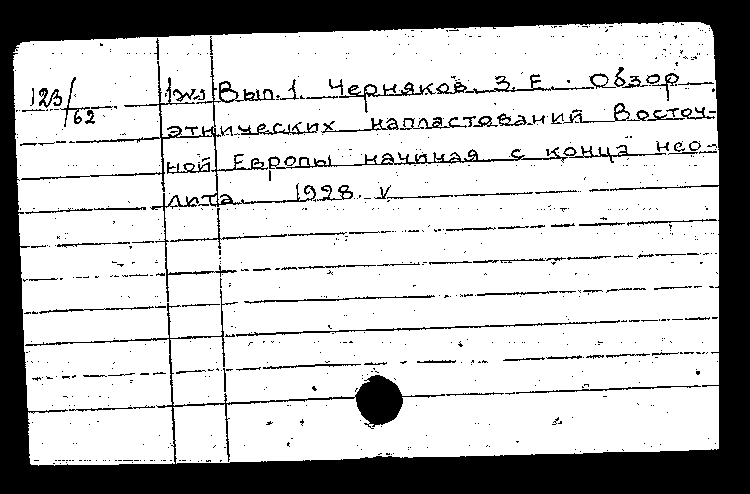 123/62 Вып. 1. Черняков, З. Е. Обзор
этнических напластований Восточ-
ной Европы начиная с конца нео-
лита. 1928. V